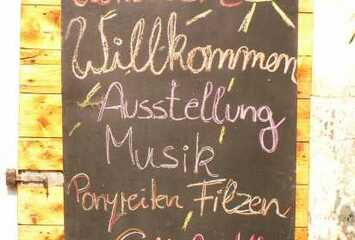 Willkommen
Ausstellung
Musik
Ponyreiten Filzen